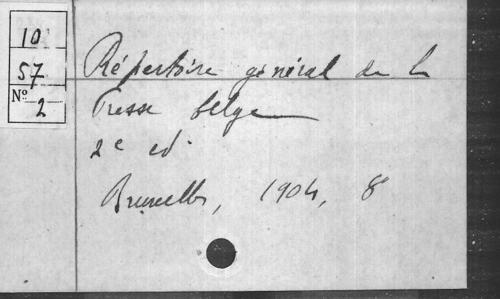 10
57
No 2
Répertoire général de la
Presse belge
2e ed.
Bruxelles, 1904, 8°